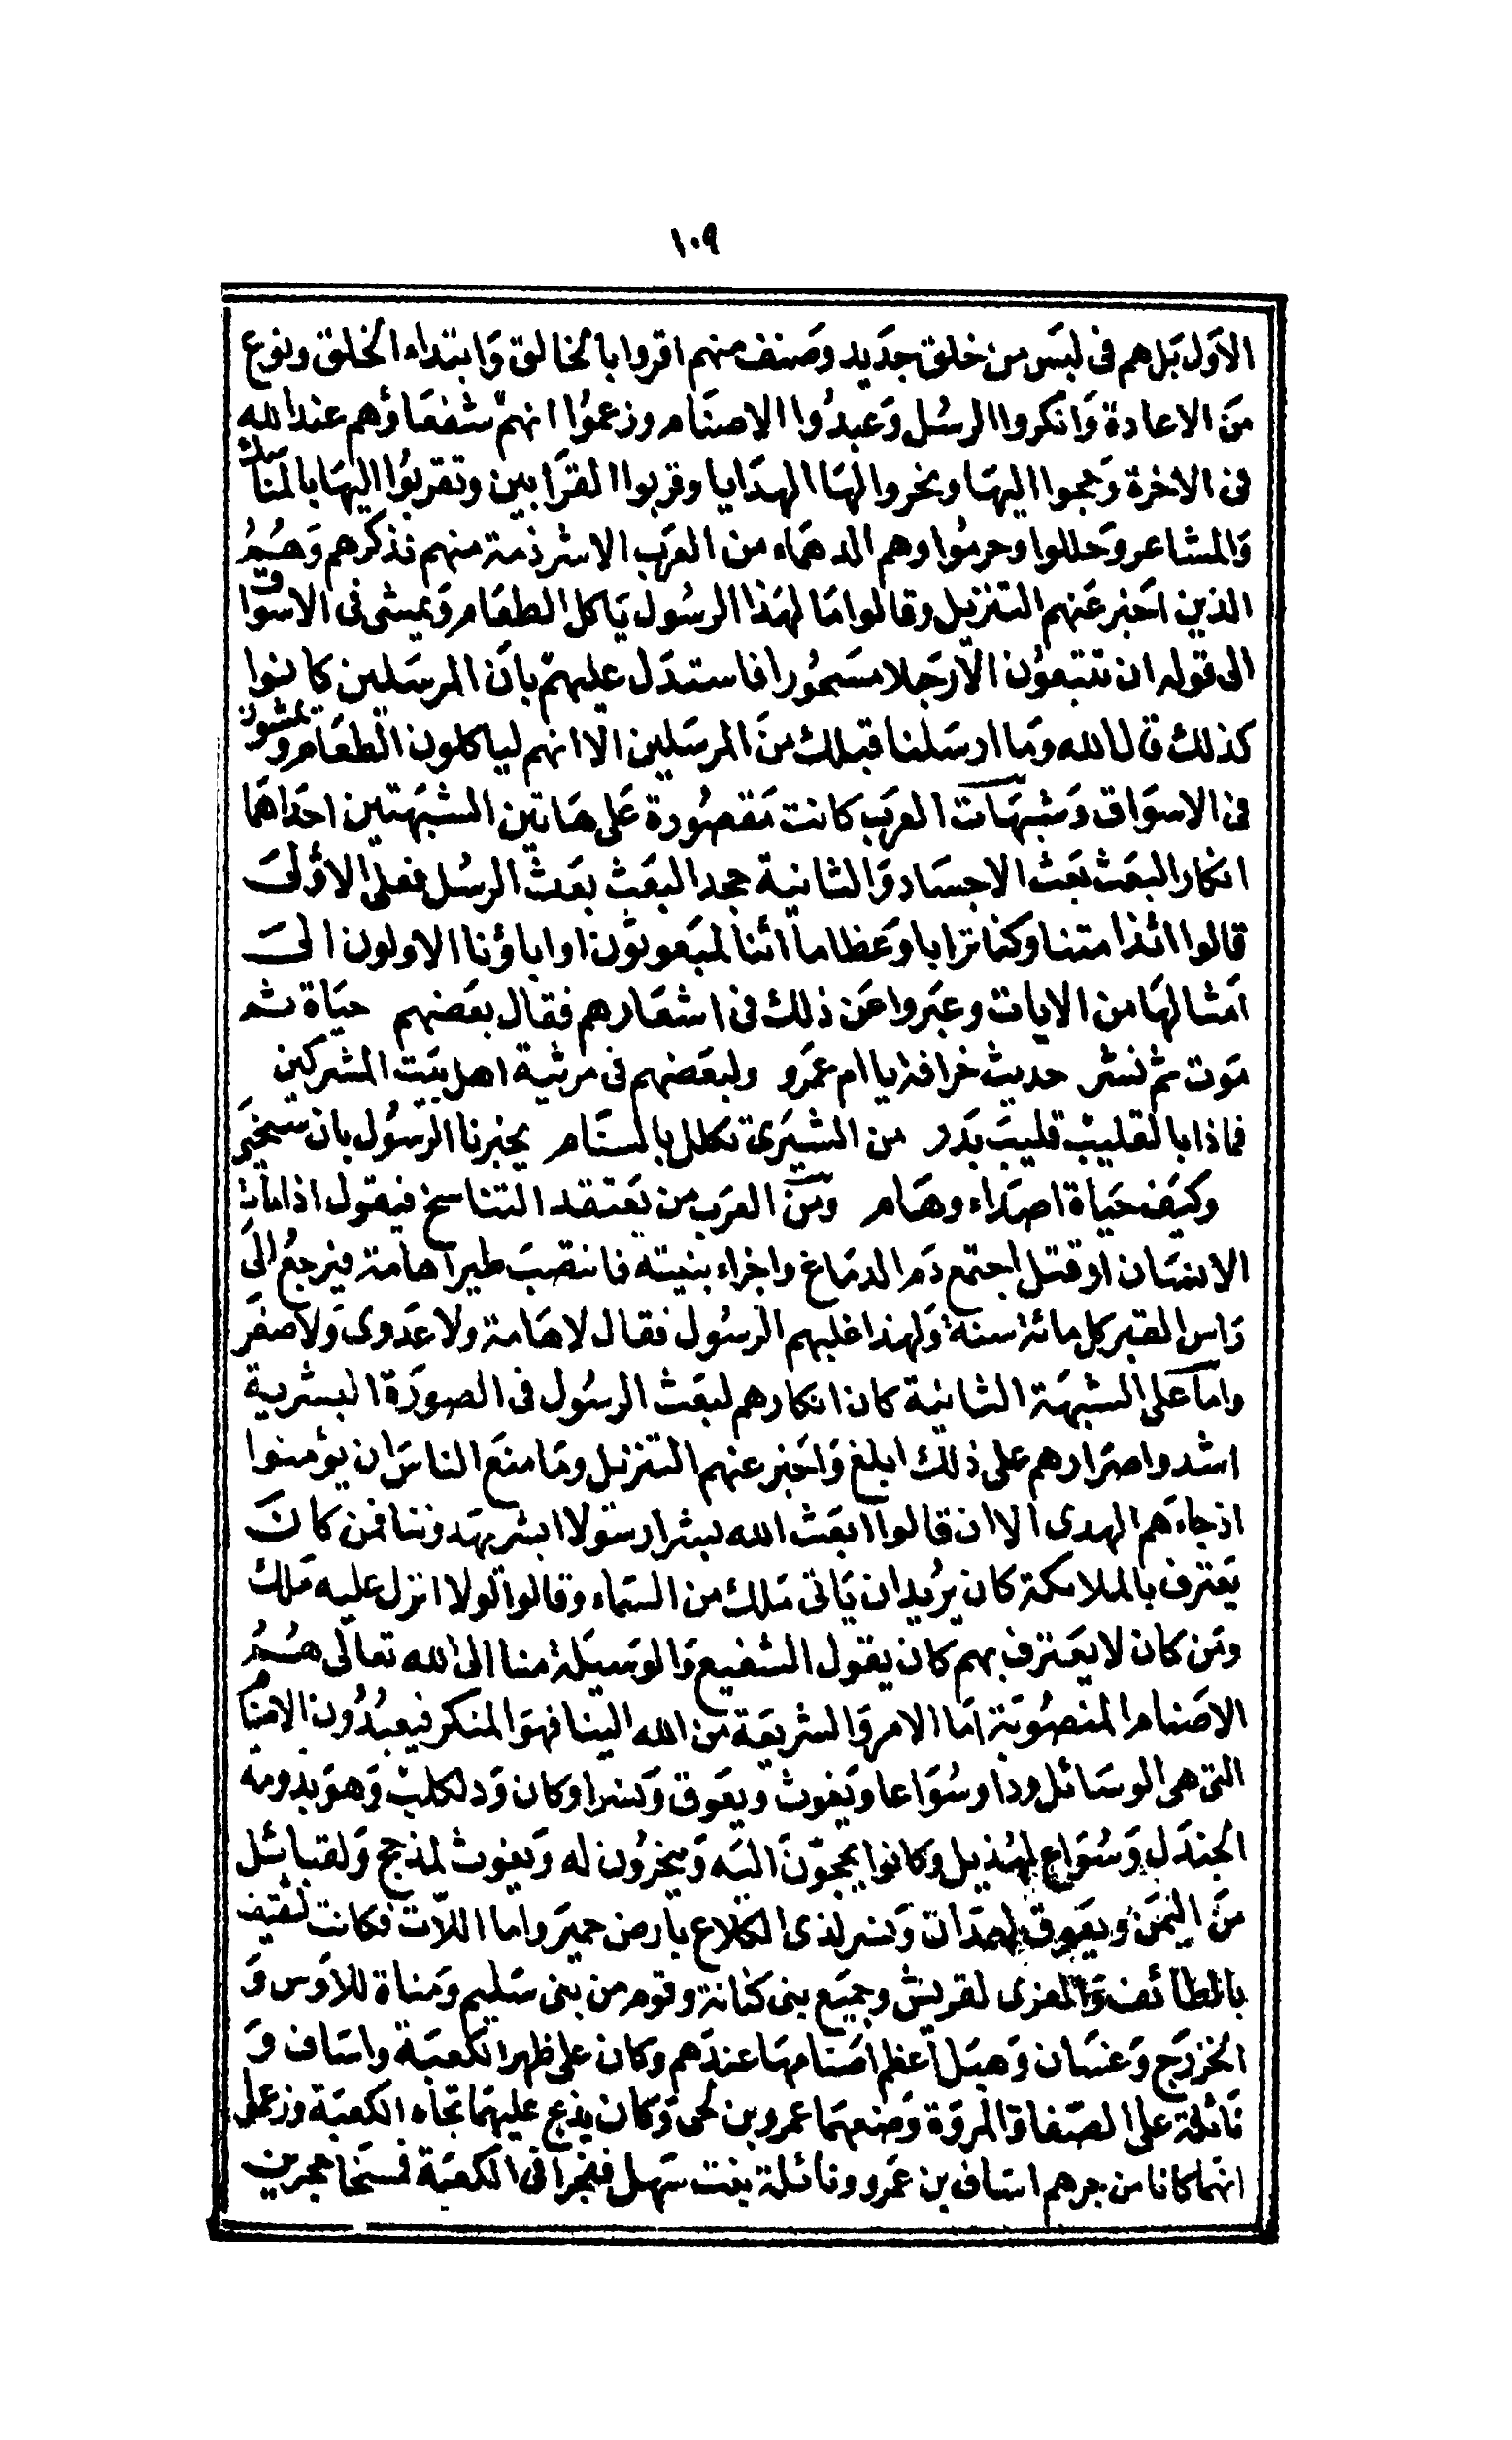 ١٠٩
الاوّل بل هم فى لبس من خلق جديد وصنف منهم اقروا بالخالق وابتداء الخلق ونوع
من الاعادة وانكروا الرسل وعبدوا الاصنام وزعموا انهم شفعاؤهم عند الله
فى الاخرة وحجوا اليها ونحروا لها الهدايا وقربوا القرابين وتقربوا اليها بالمناسك
والمشاعر وحللوا وحرموا وهم الدهماء من العرب الا شرذمة منهم نذكرهم وهم
الذين اخبر عنهم التنزيل وقالوا ما لهذا الرسول ياكل الطعام ويمشى فى الاسواق
الى قوله ان تتبعون الا رجلا مسحورا فاستدل عليهم بان المرسلين كانوا
كذلك قال الله وما ارسلنا قبلك من المرسلين الا انهم لياكلون الطعام ويمشون
فى الاسواق وشبهات العرب كانت مقصورة على هاتين الشبهتين احداهما
انكار البعث بعث الاجساد والثانية جحد البعث بعث الرسل فعلى الاولى
قالوا ائذا متنا وكنا ترابا وعظاما ائنا لمبعوثون اواباؤنا الاولون الى
امثالها من الايات وعبروا عن ذلك فى اشعارهم فقال بعضهم حياة ثم
موت ثم نشر حديث خرافة يا ام عمرو ولبعضهم فى مرثية اهل بيت المشركين
فماذا بالقليب قليب بدر من الشيزى تكلل بالسنام يخبرنا الرسول بان سنحيى
وكيف حياة اصداء وهام ومن العرب من يعتقد التناسخ فيقول اذا مات
الانسان او قتل اجتمع دم الدماغ واجزاء بنيته فانتصب طيرا هامة فيرجع الى
راس القبر كل مائة سنة ولهذا غلبهم الرسول فقال لا هامة ولا عدوى ولا صفر
واما على الشبهة الثانية كان انكارهم لبعث الرسول فى الصورة البشرية
اشد واصرارهم على ذلك ابلغ واخبر عنهم التنزيل وما منع الناس ان يؤمنوا
اذ جاءهم الهدى الا ان قالوا ابعث الله بشرا رسولا ابشر يهدوننا فمن كان
يعترف بالملائكة كان يريد ان ياتى ملك من السماء وقالوا لولا انزل عليه ملك
ومن كان لا يعترف بهم كان يقول الشفيع والوسيلة منا الى الله تعالى هم
الاصنام المنصوبة اما الامر والشريعة من الله الينا فهو المنكر فيعبدون الاصنام
التى هى الوسائل ودا وسواعا ويغوث ويعوق ونسرا وكان ود لكلب وهو بدومة
الجندل وسواع لهذيل وكانوا يحجون اليه وينحرون له ويغوث لمذحج ولقبائل
من اليمن ويعوق لهمدان ونسر لذى الكلاع بارض حمير واما اللات فكانت لثقيف
بالطائف والعزى لقريش وجميع بنى كنانة وقوم من بنى سليم ومناة للاوس و
الخزرج وغسان وهبل اعظم اصنامها عندهم وكان على ظهر الكعبة واساف و
نائلة على الصفا والمروة وضعهما عمرو بن لحى وكان يذبح عليهما تجاه الكعبة وزعموا
انهما كانا من جرهم اساف بن عمرو ونائلة بنت سهل ففجرا فى الكعبة فمسخا حجرين